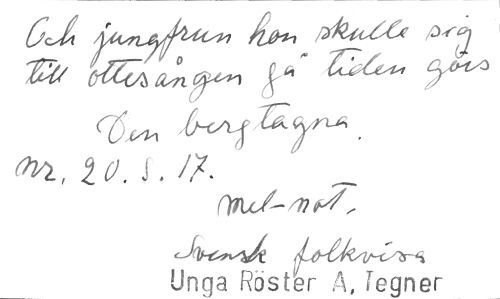 Och jungfrun hon skulle sig
till ottesången gå tiden görs
Den bergtagna.
nr. 20. S. 17.
mel-not.
Svensk folkvisa
Unga Röster A. Tegner